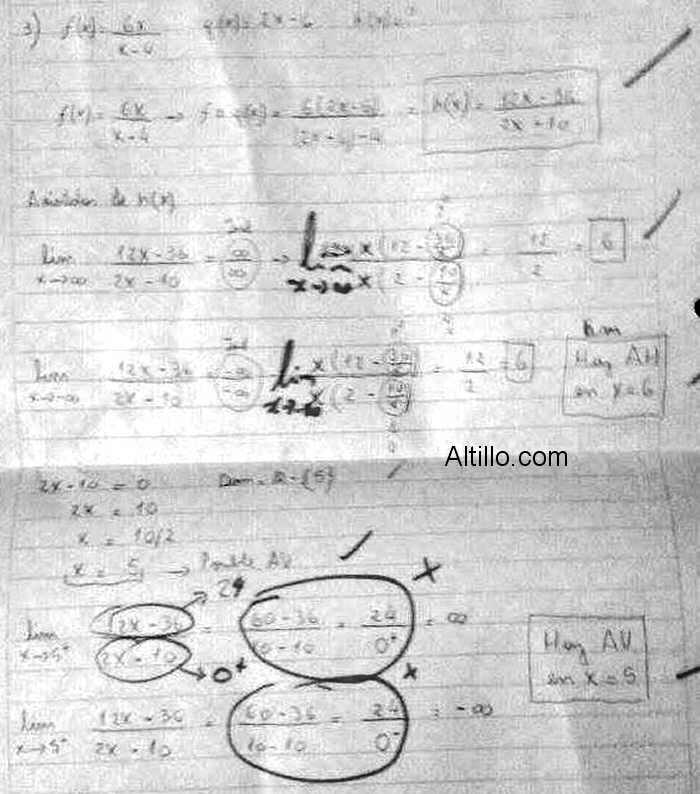 3) f(x)= 6x/(x-4) g(x)=2x-6
f(x)= 6x/(x-4) → = 6(2x-6)/((2x-6)-4) = h(x)= (12x-36)/(2x-10)
de h(x)
lim x→∞ (12x-36)/(2x-10) = ∞/∞ Ind → lim x→∞ x(12-(36/x))/x(2-(10/x)) = 12/2 = 6
lim x→-∞ (12x-36)/(2x-10) = -∞/-∞ Ind lim x→-∞ x(12-(36/x))/x(2-(10/x)) = 12/2 = 6
Hay AH
en x=6
Altillo.com
2x-10 = 0 Dom = R-{5}
2x = 10
x = 10/2
x = 5 → Posible AV
24
lim x→5⁺ (12x-36)/(2x-10) = (60-36)/(10-10) = 24/0⁺ = ∞
0⁺
Hay AV
en x=5
lim (12x-36)/(2x-10) = (60-36)/(10-10) = 24/0⁻ = -∞